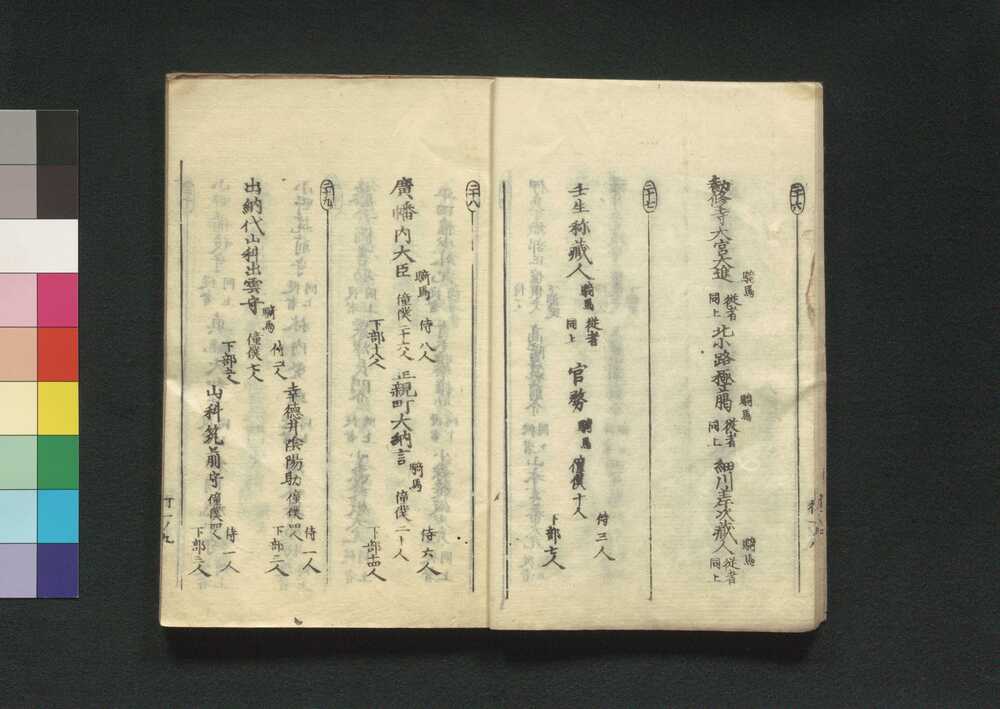 二十六
勧修寺大宮大進 騎馬 従者同上 北小路極﨟 騎馬 従者同上 細川差次蔵人 騎馬 従者同上
二十七
壬生称蔵人 騎馬 従者同上 官務 騎馬 僮僕十人 侍三人 下部七人
二十八
廣幡内大臣 騎馬 僮僕二十六人 侍八人 下部十八人 正親町大納言 騎馬 僮僕二十人 侍六人 下部十四人
二十九
幸徳井陰陽助 僮僕四人 侍一人 下部二人
出納代山科出雲守 騎馬 僮僕七人 侍二人 下部五人 山科筑前守 僮僕四人 侍一人 下部三人